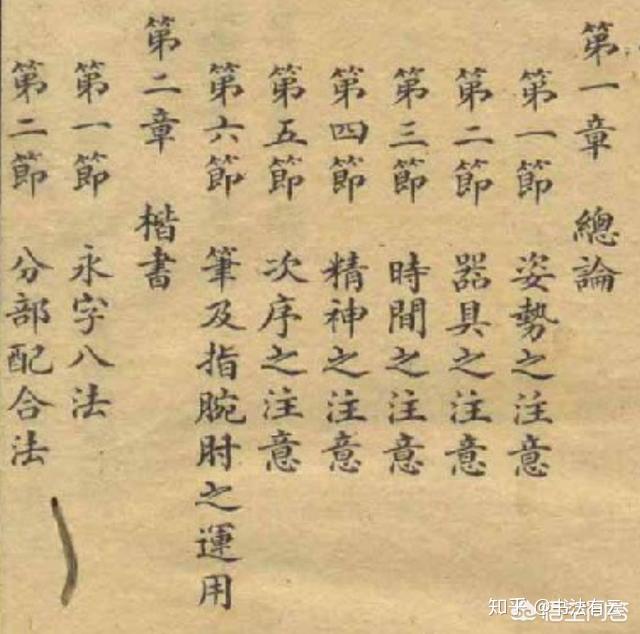 第一章　總論
第一節　姿勢之注意
第二節　器具之注意
第三節　時間之注意
第四節　精神之注意
第五節　次序之注意
第六節　筆及指腕肘之運用
第二章　楷書
第一節　永字八法
第二節　分部配合法
知乎 @书法有云
悟空问答